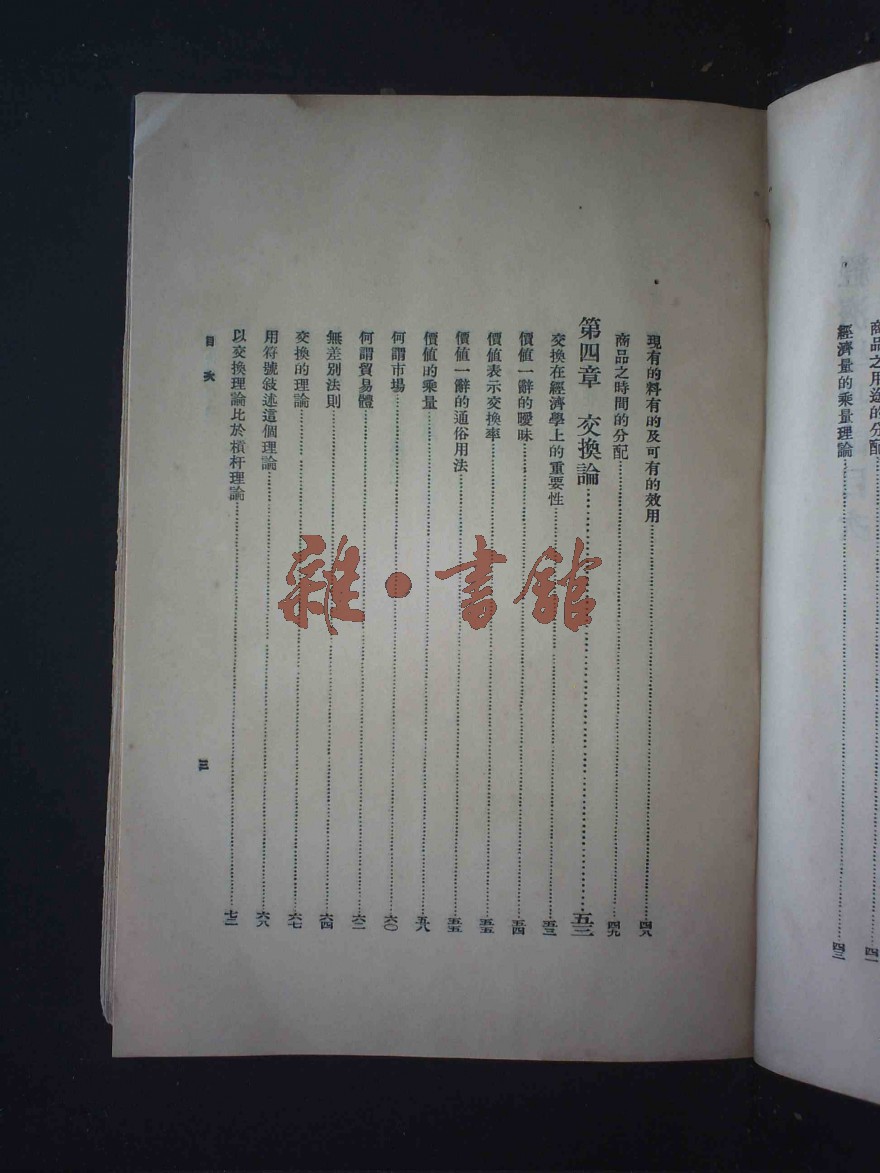 商品之用途的分配……四一
經濟量的乘量理論……四三
現有的料有的及可有的效用……四八
商品之時間的分配……四九
第四章 交換論……五三
交換在經濟學上的重要性……五三
價值一辭的曖昧……五四
價值表示交換率……五五
價值一辭的通俗用法……五五
價值的乘量……五八
何謂市場……六〇
何謂貿易體……六二
無差別法則……六四
交換的理論……六七
用符號敍述這個理論……六八
以交換理論比於槓杆理論……七二
目次
三
雜·書館